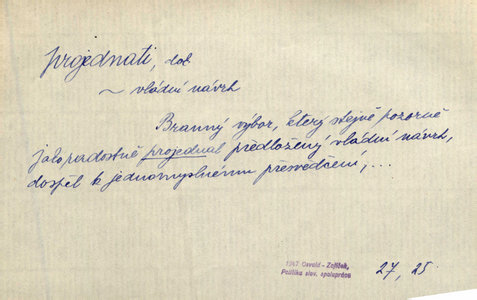 projednati, dok
~ vládní návrh
Branný výbor, který stejně pozorně
jako radostně projednal předložený vládní návrh,
dospěl k jednomyslnému přesvědčení,...
1947 Osvald - Zejiček,
Politika slov. spolupráce
27, 25